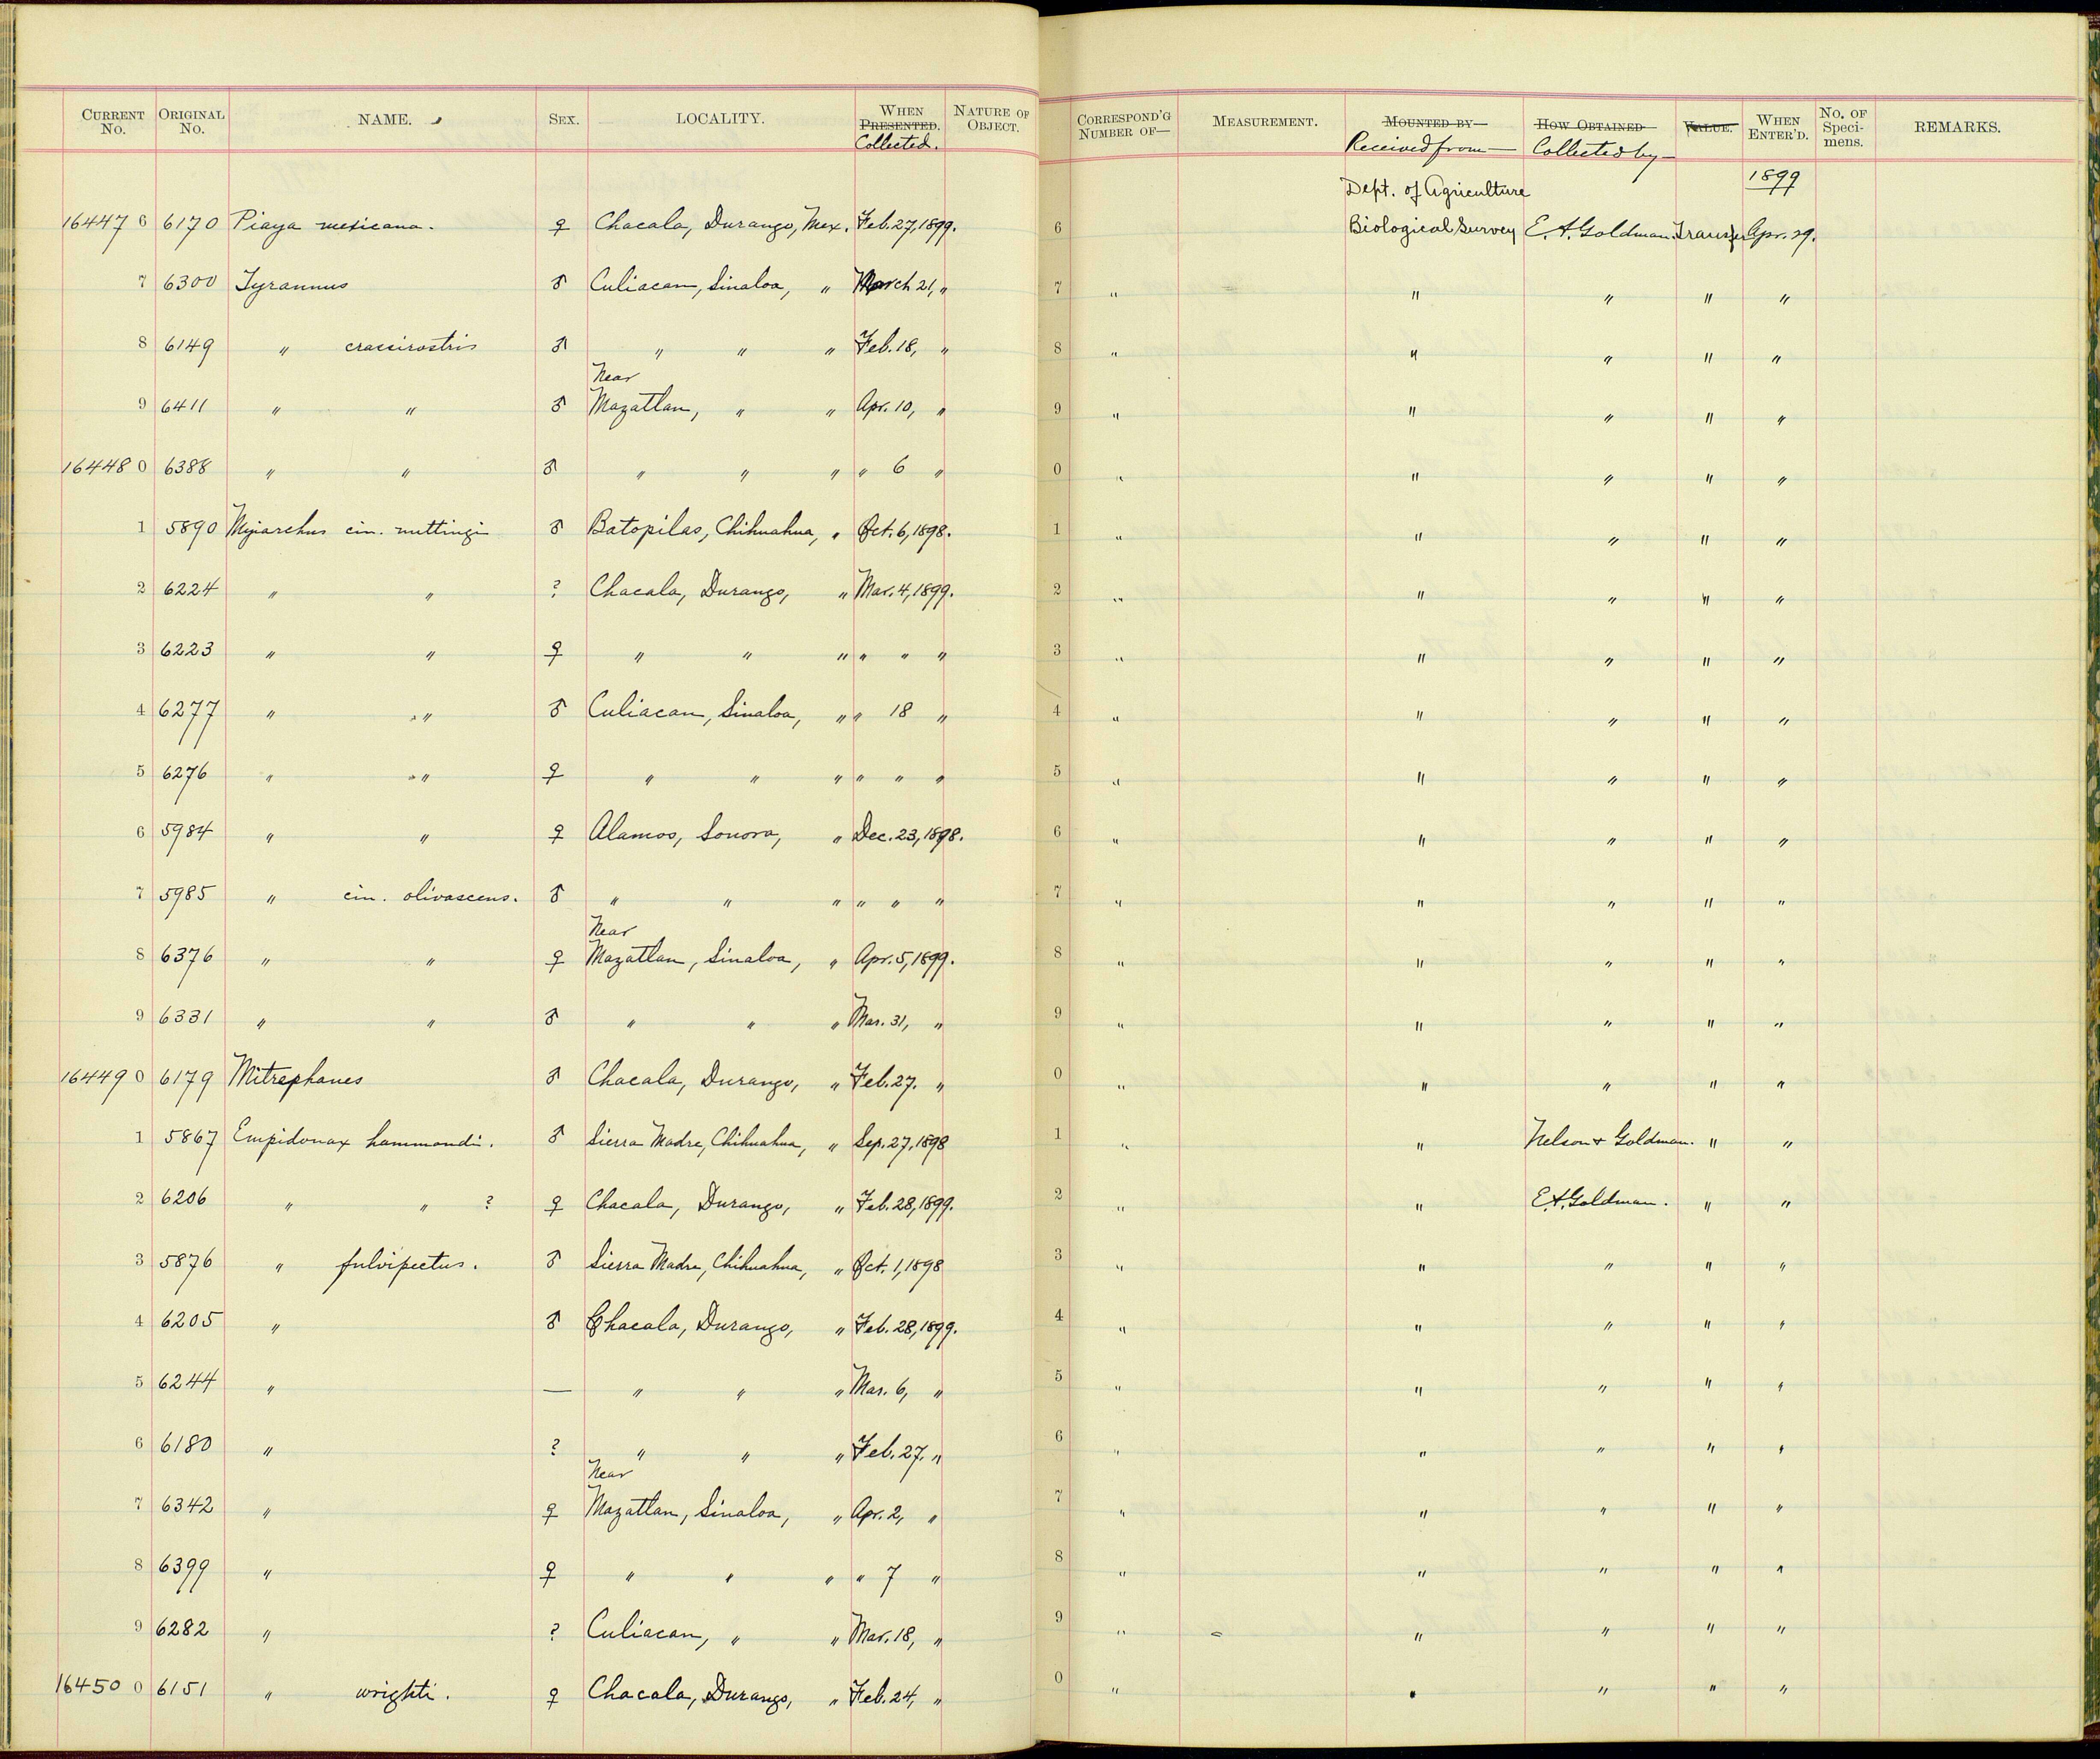 CURRENT No. ORIGINAL No. NAME. SEX. LOCALITY. WHEN PRESENTED. Collected. NATURE OF OBJECT. CORRESPOND'G NUMBER OF— MEASUREMENT. MOUNTED BY— Received from— HOW OBTAINED— Collected by— VALUE. WHEN ENTER'D. No. OF Speci-mens. REMARKS.
Dept. of Agriculture 1899
16447 6 6170 Piaya mexicana. ♀ Chacala, Durango, Mex. Feb. 27, 1899. 6 Biological Survey E. A. Goldman. Transfer Apr. 29.
7 6300 Tyrannus ♂ Culiacan, Sinaloa, " March 21, " 7 " " " " "
8 6149 " crassirostris ♂ " " " Feb. 18, " 8 " " " " "
Near
9 6411 " " ♂ Mazatlan, " " Apr. 10, " 9 " " " " "
16448 0 6388 " " ♂ " " " " 6 " 0 " " " " "
1 5890 Myiarchus cin. nuttingi ♂ Batopilas, Chihuahua, " Oct. 6, 1898. 1 " " " " "
2 6224 " " ? Chacala, Durango, " Mar. 4, 1899. 2 " " " " "
3 6223 " " ♀ " " " " " " 3 " " " " "
4 6277 " " ♂ Culiacan, Sinaloa, " " 18 " 4 " " " " "
5 6276 " " ♀ " " " " " " 5 " " " " "
6 5984 " " ♀ Alamos, Sonora, " Dec. 23, 1898. 6 " " " " "
7 5985 " cin. olivascens. ♂ " " " " " " 7 " " " " "
Near
8 6376 " " ♀ Mazatlan, Sinaloa, " Apr. 5, 1899. 8 " " " " "
9 6331 " " ♂ " " " Mar. 31, " 9 " " " " "
16449 0 6179 Mitrephanes ♂ Chacala, Durango, " Feb. 27. " 0 " " " " "
1 5867 Empidonax hammondi. ♂ Sierra Madre, Chihuahua, " Sep. 27, 1898 1 " " Nelson & Goldman. " "
2 6206 " " ? ♀ Chacala, Durango, " Feb. 28, 1899. 2 " " E. A. Goldman. " "
3 5876 " fulvipectus. ♂ Sierra Madre, Chihuahua, " Oct. 1, 1898 3 " " " " "
4 6205 " ♂ Chacala, Durango, " Feb. 28, 1899. 4 " " " " "
5 6244 " — " " " Mar. 6, " 5 " " " " "
6 6180 " ? " " " Feb. 27. " 6 " " " " "
Near
7 6342 " ♀ Mazatlan, Sinaloa, " Apr. 2, " 7 " " " " "
8 6399 " ♀ " " " " 7 " 8 " " " " "
9 6282 " ? Culiacan, " " Mar. 18, " 9 " " " " "
16450 0 6151 " wrighti. ♀ Chacala, Durango, " Feb. 24, " 0 " " " " "